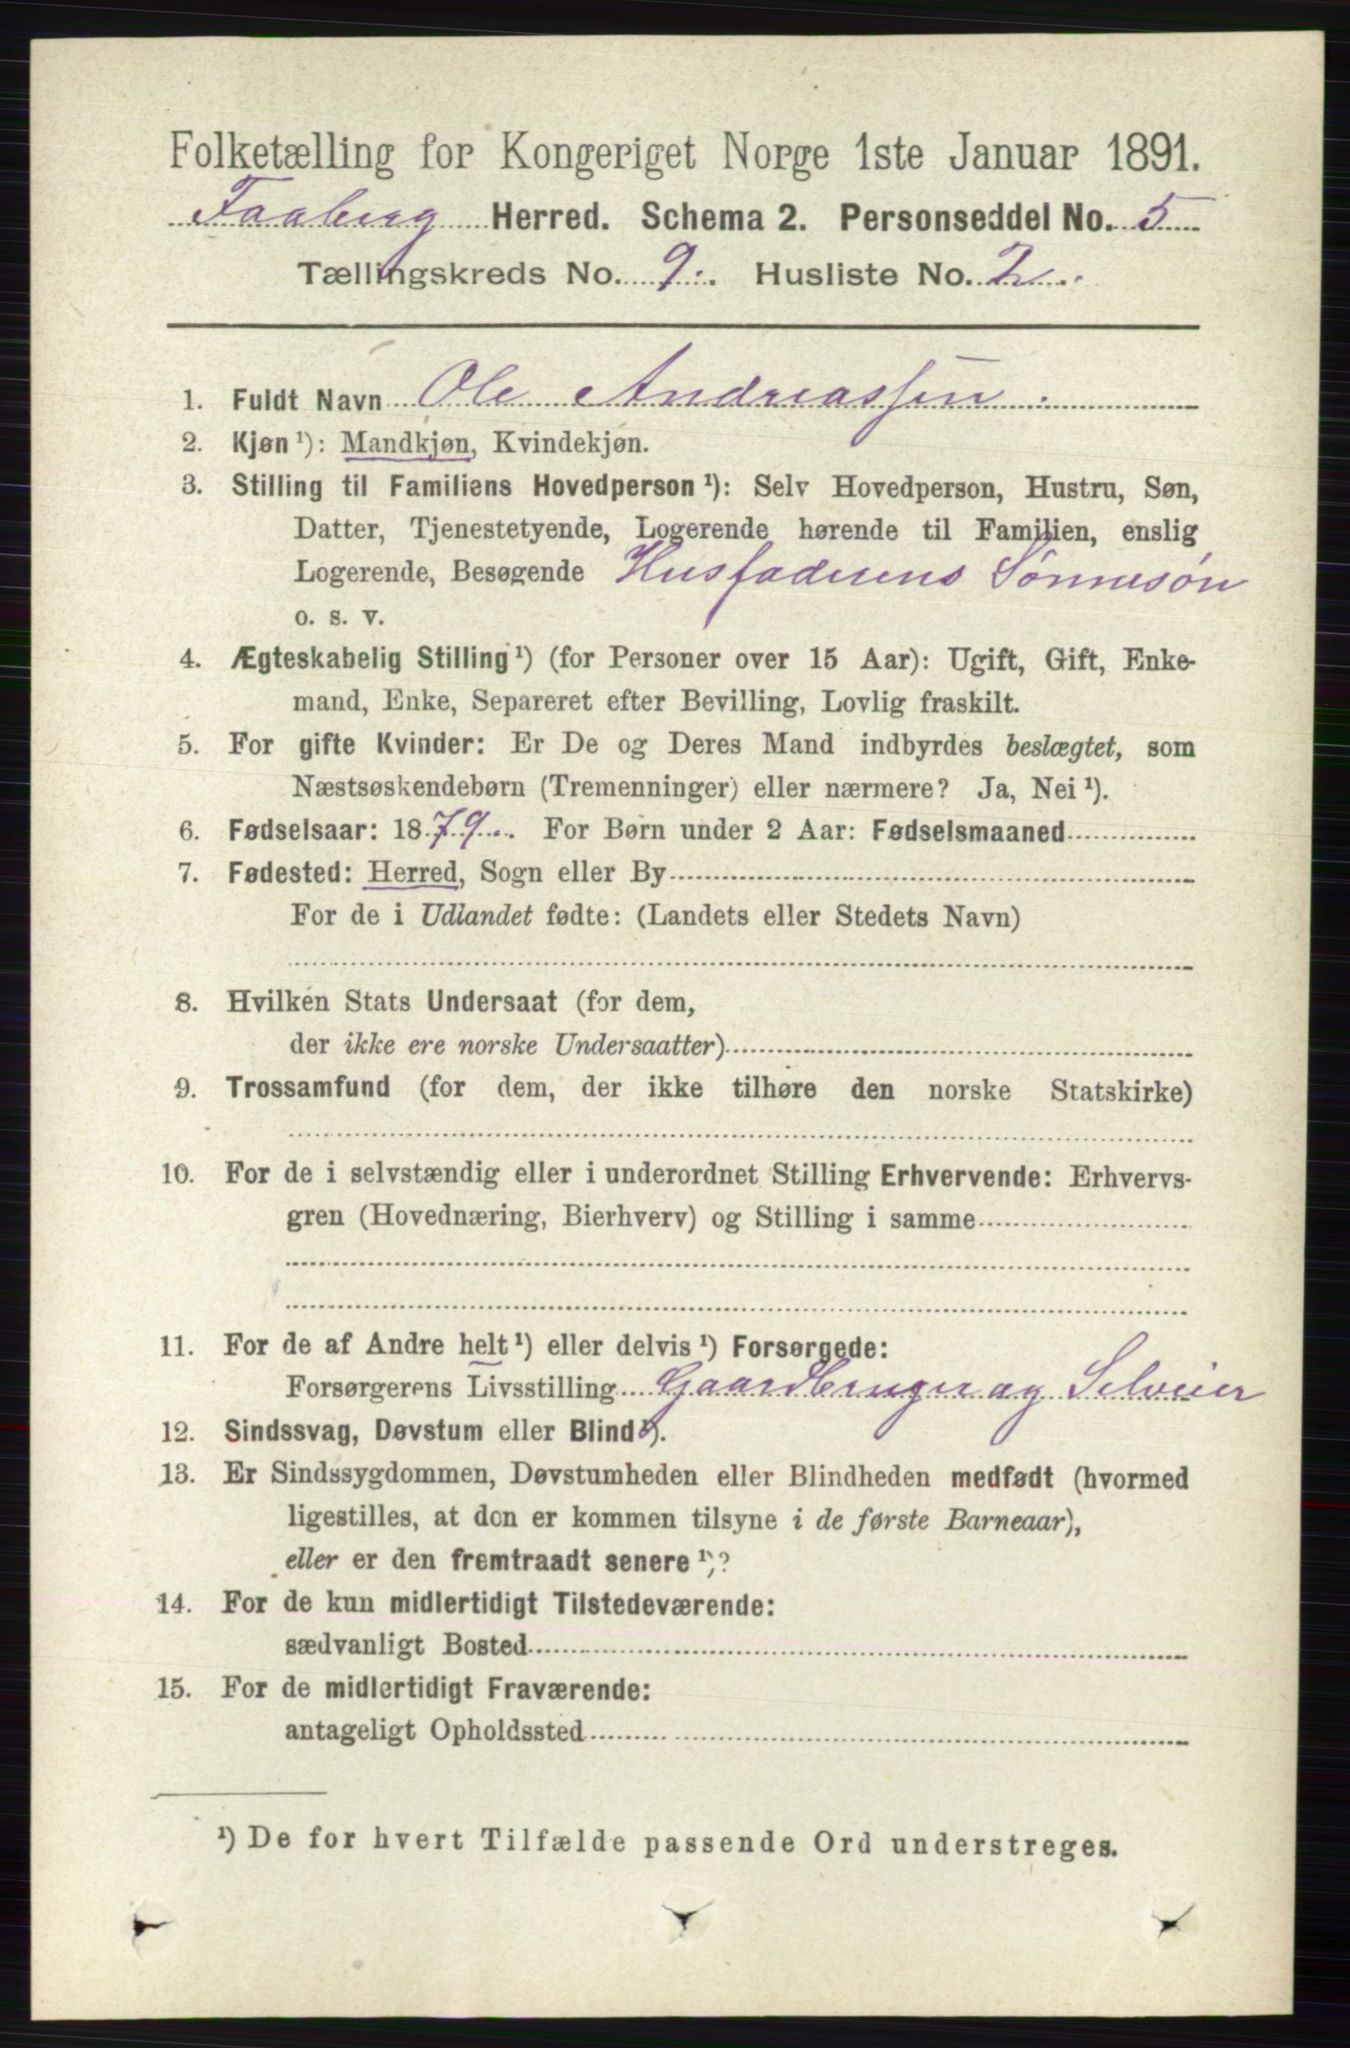 Folketælling for Kongeriget Norge 1ste Januar 1891.
Faaberg Herred. Schema 2. Personseddel No. 5
Tællingskreds No. 9. Husliste No. 2.
1. Fuldt Navn Ole Andreassen.
2. Kjøn ¹): Mandkjøn, Kvindekjøn.
3. Stilling til Familiens Hovedperson ¹): Selv Hovedperson, Hustru, Søn,
Datter, Tjenestetyende, Logerende hørende til Familien, enslig
Logerende, Besøgende Husfaderens Sönnesön
o. s. v.
4. Ægteskabelig Stilling ¹) (for Personer over 15 Aar): Ugift, Gift, Enke-
mand, Enke, Separeret efter Bevilling, Lovlig fraskilt.
5. For gifte Kvinder: Er De og Deres Mand indbyrdes beslægtet, som
Næstsøskendebørn (Tremenninger) eller nærmere? Ja, Nei ¹).
6. Fødselsaar: 1879. For Børn under 2 Aar: Fødselsmaaned
7. Fødested: Herred, Sogn eller By
For de i Udlandet fødte: (Landets eller Stedets Navn)
8. Hvilken Stats Undersaat (for dem,
der ikke ere norske Undersaatter)
9. Trossamfund (for dem, der ikke tilhøre den norske Statskirke)
10. For de i selvstændig eller i underordnet Stilling Erhvervende: Erhvervs-
gren (Hovednæring, Bierhverv) og Stilling i samme
11. For de af Andre helt ¹) eller delvis ¹) Forsørgede:
Forsørgerens Livsstilling Gaardbruger og Selveier
12. Sindssvag, Døvstum eller Blind ¹).
13. Er Sindssygdommen, Døvstumheden eller Blindheden medfødt (hvormed
ligestilles, at den er kommen tilsyne i de første Barneaar),
eller er den fremtraadt senere ¹)?
14. For de kun midlertidigt Tilstedeværende:
sædvanligt Bosted
15. For de midlertidigt Fraværende:
antageligt Opholdssted
¹) De for hvert Tilfælde passende Ord understreges.